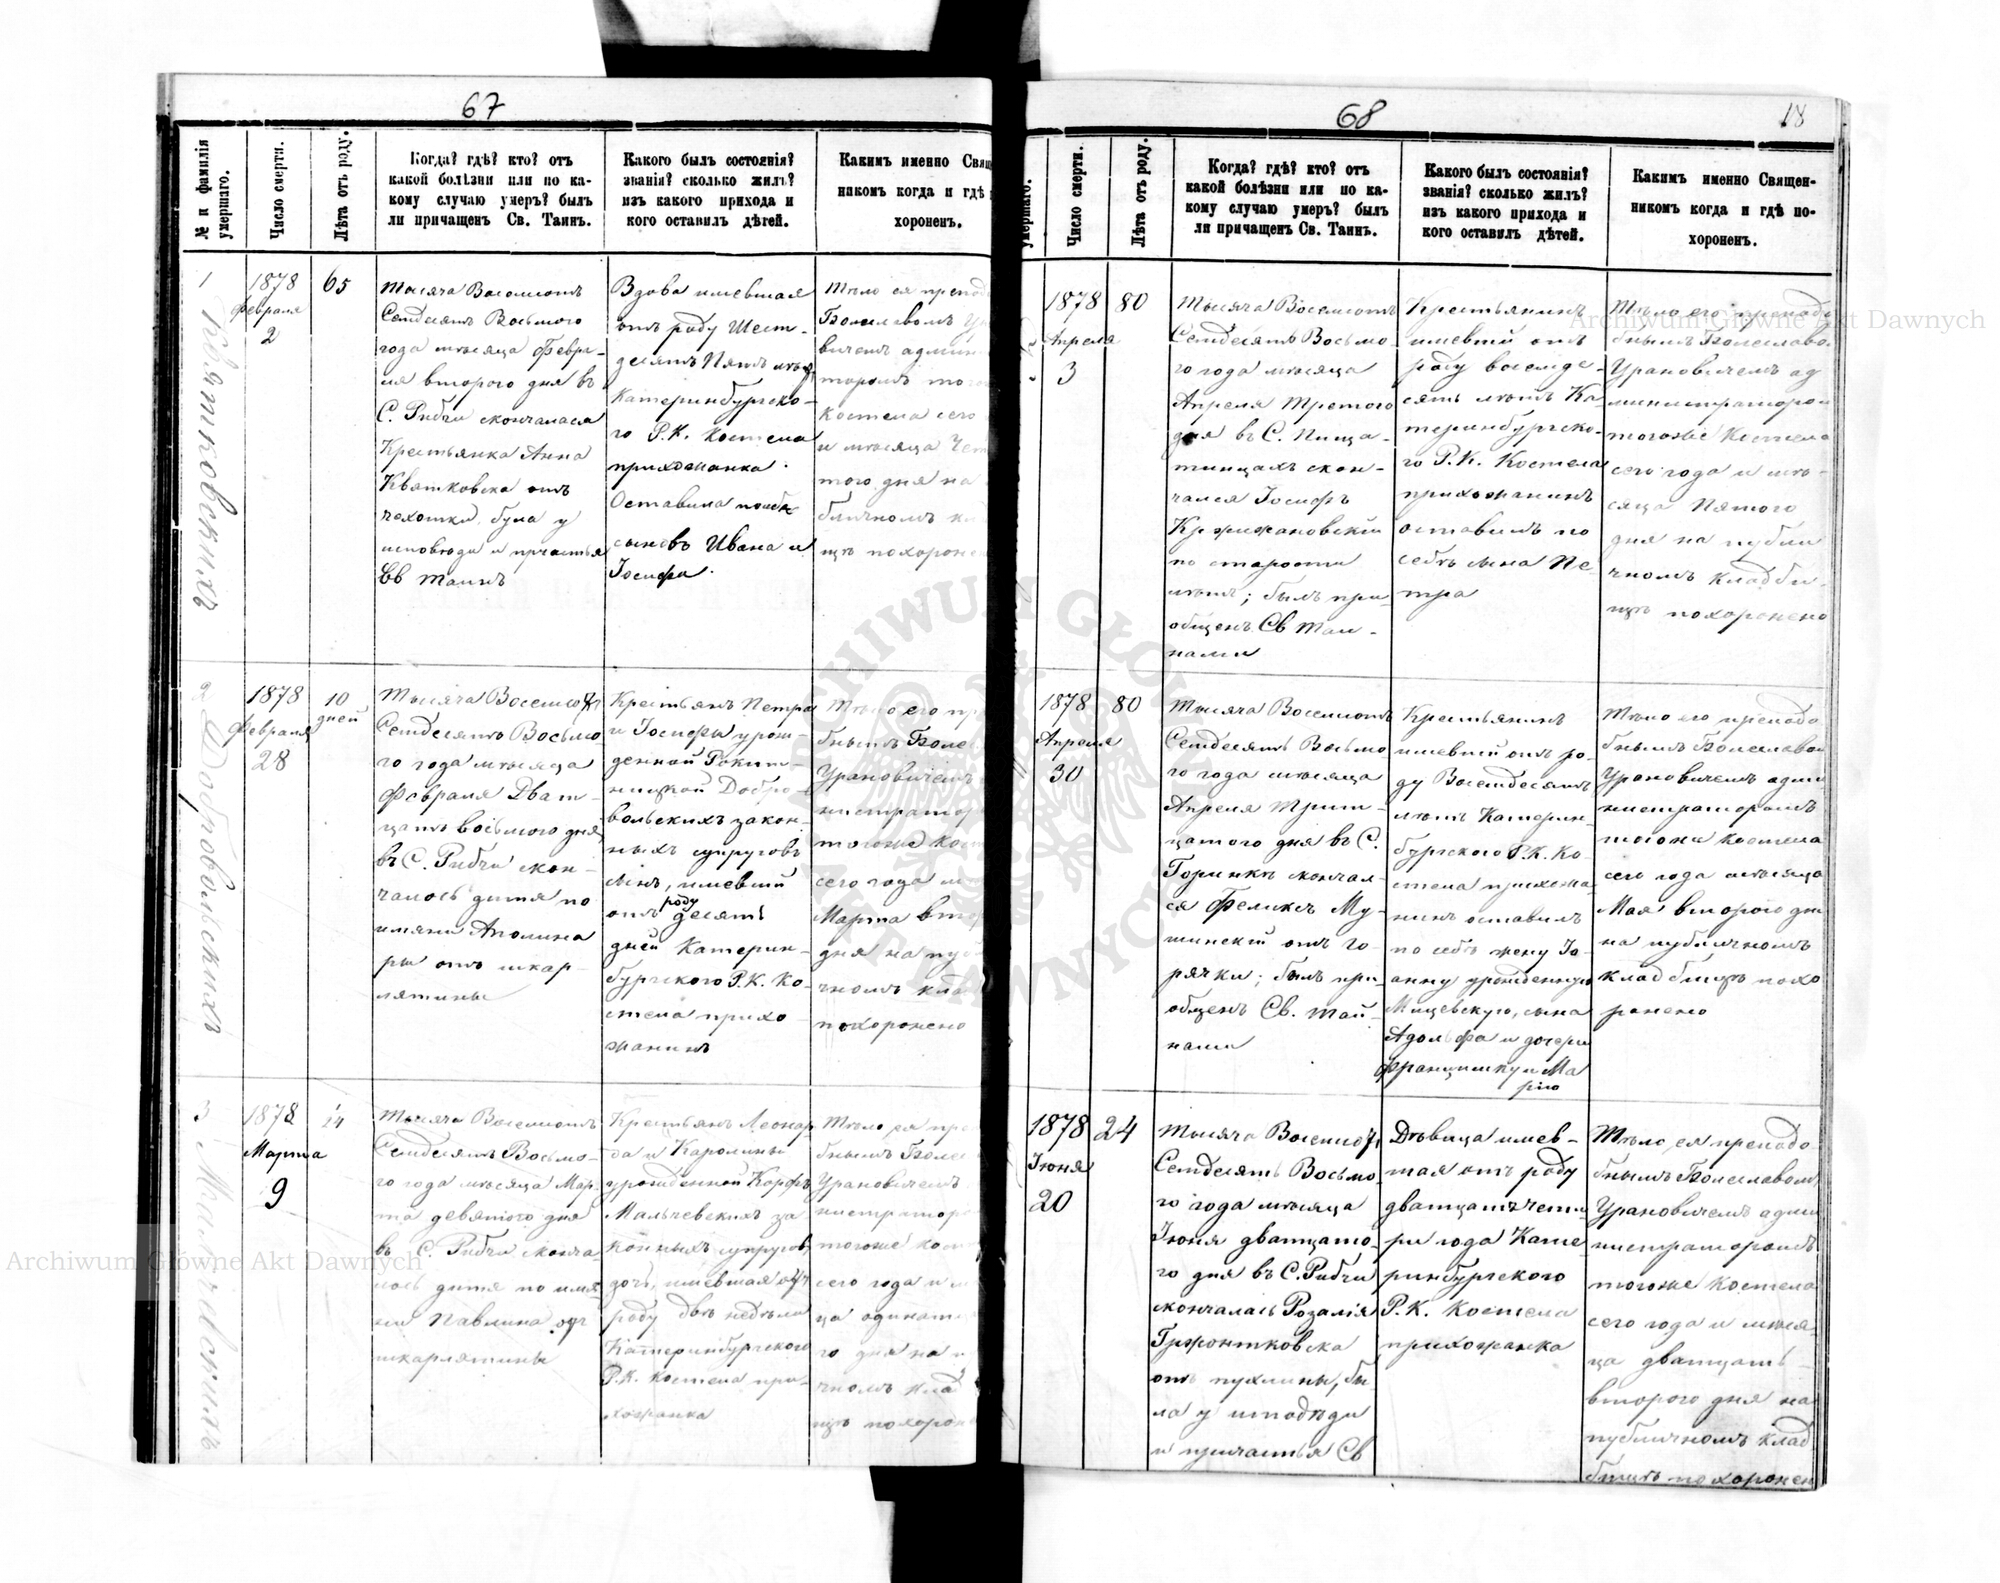 67
№ и фамилія умершаго.
Число смерти.
Лѣта отъ роду.
Когда? гдѣ? кто? отъ
какой болѣзни или по ка-
кому случаю умеръ? былъ
ли причащенъ Св. Таинъ.
Какого былъ состоянія?
званія? сколько жилъ?
изъ какого прихода и
кого оставилъ дѣтей.
Какимъ именно Свящ
никомъ когда и гдѣ
хороненъ.
1
Квятковскихъ
1878
Февраля
2
65
Тысяча Восемьсотъ
Семдесятъ Восьмого
года мѣсяца Февра-
ля второго дня въ
С. Рибчи скончалася
Крестьянка Анна
Квятковска отъ
чахотки, була у
исповѣди и причастья
Св таинъ
Вдова имевшая
отъ роду Шест-
десятъ Пять лѣтъ
Катеринбургско-
го Р.К. Костела
прихожанка.
Оставила по себѣ
сыновъ Ивана и
Іосифа.
Тѣло ея препод
Болеславомъ Ур
вичемъ админ
торомъ того
Костела сего
и мѣсяца Чет
того дня на
бличномъ к
щѣ похороне
2
Добровольскихъ
1878
Февраля
28
10
дней
Тысяча Восемсотъ
Семдесятъ Восьмо
го года мѣсяца
Февраля Дват-
цать восьмого дня
въ С. Рибчи скон-
чалось дитя по
имяни Аполина
ры отъ шкар-
лятины
Крестьянъ Петра
и Іосифы урож-
денной Рокит-
ницкой Добро-
вольскихъ закон-
ныхъ супруговъ
сынъ, имевшій
отъ роду десять
дней Катерин-
бургского Р.К. Ко-
стела прихо
жанинъ
Тѣло его пр
бнымъ Болес
Урановичемъ
нистратор
тогоже Кос
сего года м
Марта втор
дня на пуб
чномъ кла
похоронено
3
Мальчевскихъ
1878
Марта
9
14
Тысяча Восемсотъ
Семдесятъ Восьмо-
го года мѣсяца Мар-
та девятого дня
въ С. Рибчи сконча
лось дитя по имя
ни Павлина отъ
шкарлятины
Крестьянъ Леонар
да и Каролины
урожденной Корфъ
Мальчевскихъ за
конныхъ супругов
дочь, имевшая отъ
роду двѣ недѣли
Катеринбургского
Р.К. Костела при-
хожанка
Тѣло ея пр
бнымъ Болес
Урановичемъ
нистраторо
тогоже кост
сего года и м
ца одинат
го дня на
чномъ клад
щѣ похорон
68
18
умершаго.
Число смерти.
Лѣта отъ роду.
Когда? гдѣ? кто? отъ
какой болѣзни или по ка-
кому случаю умеръ? былъ
ли причащенъ Св. Таинъ.
Какого былъ состоянія?
званія? сколько жилъ?
изъ какого прихода и
кого оставилъ дѣтей.
Какимъ именно Священ-
никомъ когда и гдѣ по-
хороненъ.
1878
Апреля
3
80
Тысяча Восемсотъ
Семдесятъ Восьмо
го года мѣсяца
Апреля Третого
дня въ С. Пища-
тинцахъ скон-
чался Іосифъ
Кржижановскій
по старости
лѣтъ; былъ при-
общенъ Св Таи-
нами
Крестьянинъ
имевшій отъ
роду восемде-
сятъ лѣтъ Ка-
теринбургско-
го Р.К. Костела
прихожанинъ
оставилъ по
себѣ сына Пе-
тра
Тѣло его преподо
бнымъ Болеславом
Урановичемъ ад
министратором
тогоже Костела
сего года и мѣ-
сяца Пятого
дня на публи
чномъ кладби-
щѣ похоронено
1878
Апреля
30
80
Тысяча Восемсотъ
Семдесятъ Восьмо
го года мѣсяца
Апреля Трит-
цатого дня въ С.
Горинкѣ скончал-
ся Феликсъ Му-
шинскій отъ го-
рячки; былъ при
общенъ Св. Тай-
нами
Крестьянинъ
имевшій отъ ро-
ду Восемдесятъ
лѣтъ Катерин-
бургского Р.К. Ко-
стела прихожа
нинъ оставилъ
по себѣ жену Іо-
анну урожденную
Мицевскую, сына
Адольфа и дочери
Францишку и Ма
рію
Тѣло его преподо
бнымъ Болеславом
Урановичемъ адми
нистраторомъ
тогоже костела
сего года мѣсяца
Мая второго дня
на публичномъ
кладбищѣ похо
ронено
1878
Іюня
20
24
Тысяча Восемсотъ
Семдесятъ Восьмо
го года мѣсяца
Іюня дватцато-
го дня въ С. Рибчи
скончалась Розалія
Гржонтковска
отъ пухлины, бы
ла у исповѣди
и причастья Св
Дѣвица имев-
шая отъ роду
дватцать четы
ри года Кате
ринбургского
Р.К. Костела
прихожанка
Тѣло ея преподо
бнымъ Болеславомъ
Урановичемъ адми
нистраторомъ
тогоже костела
сего года и мѣся-
ца дватцать-
второго дня на
публичномъ клад
бищѣ похоронен
Archiwum Główne Akt Dawnych
Archiwum Główne Akt Dawnych
ARCHIWUM GŁÓWNE AKT DAWNYCH